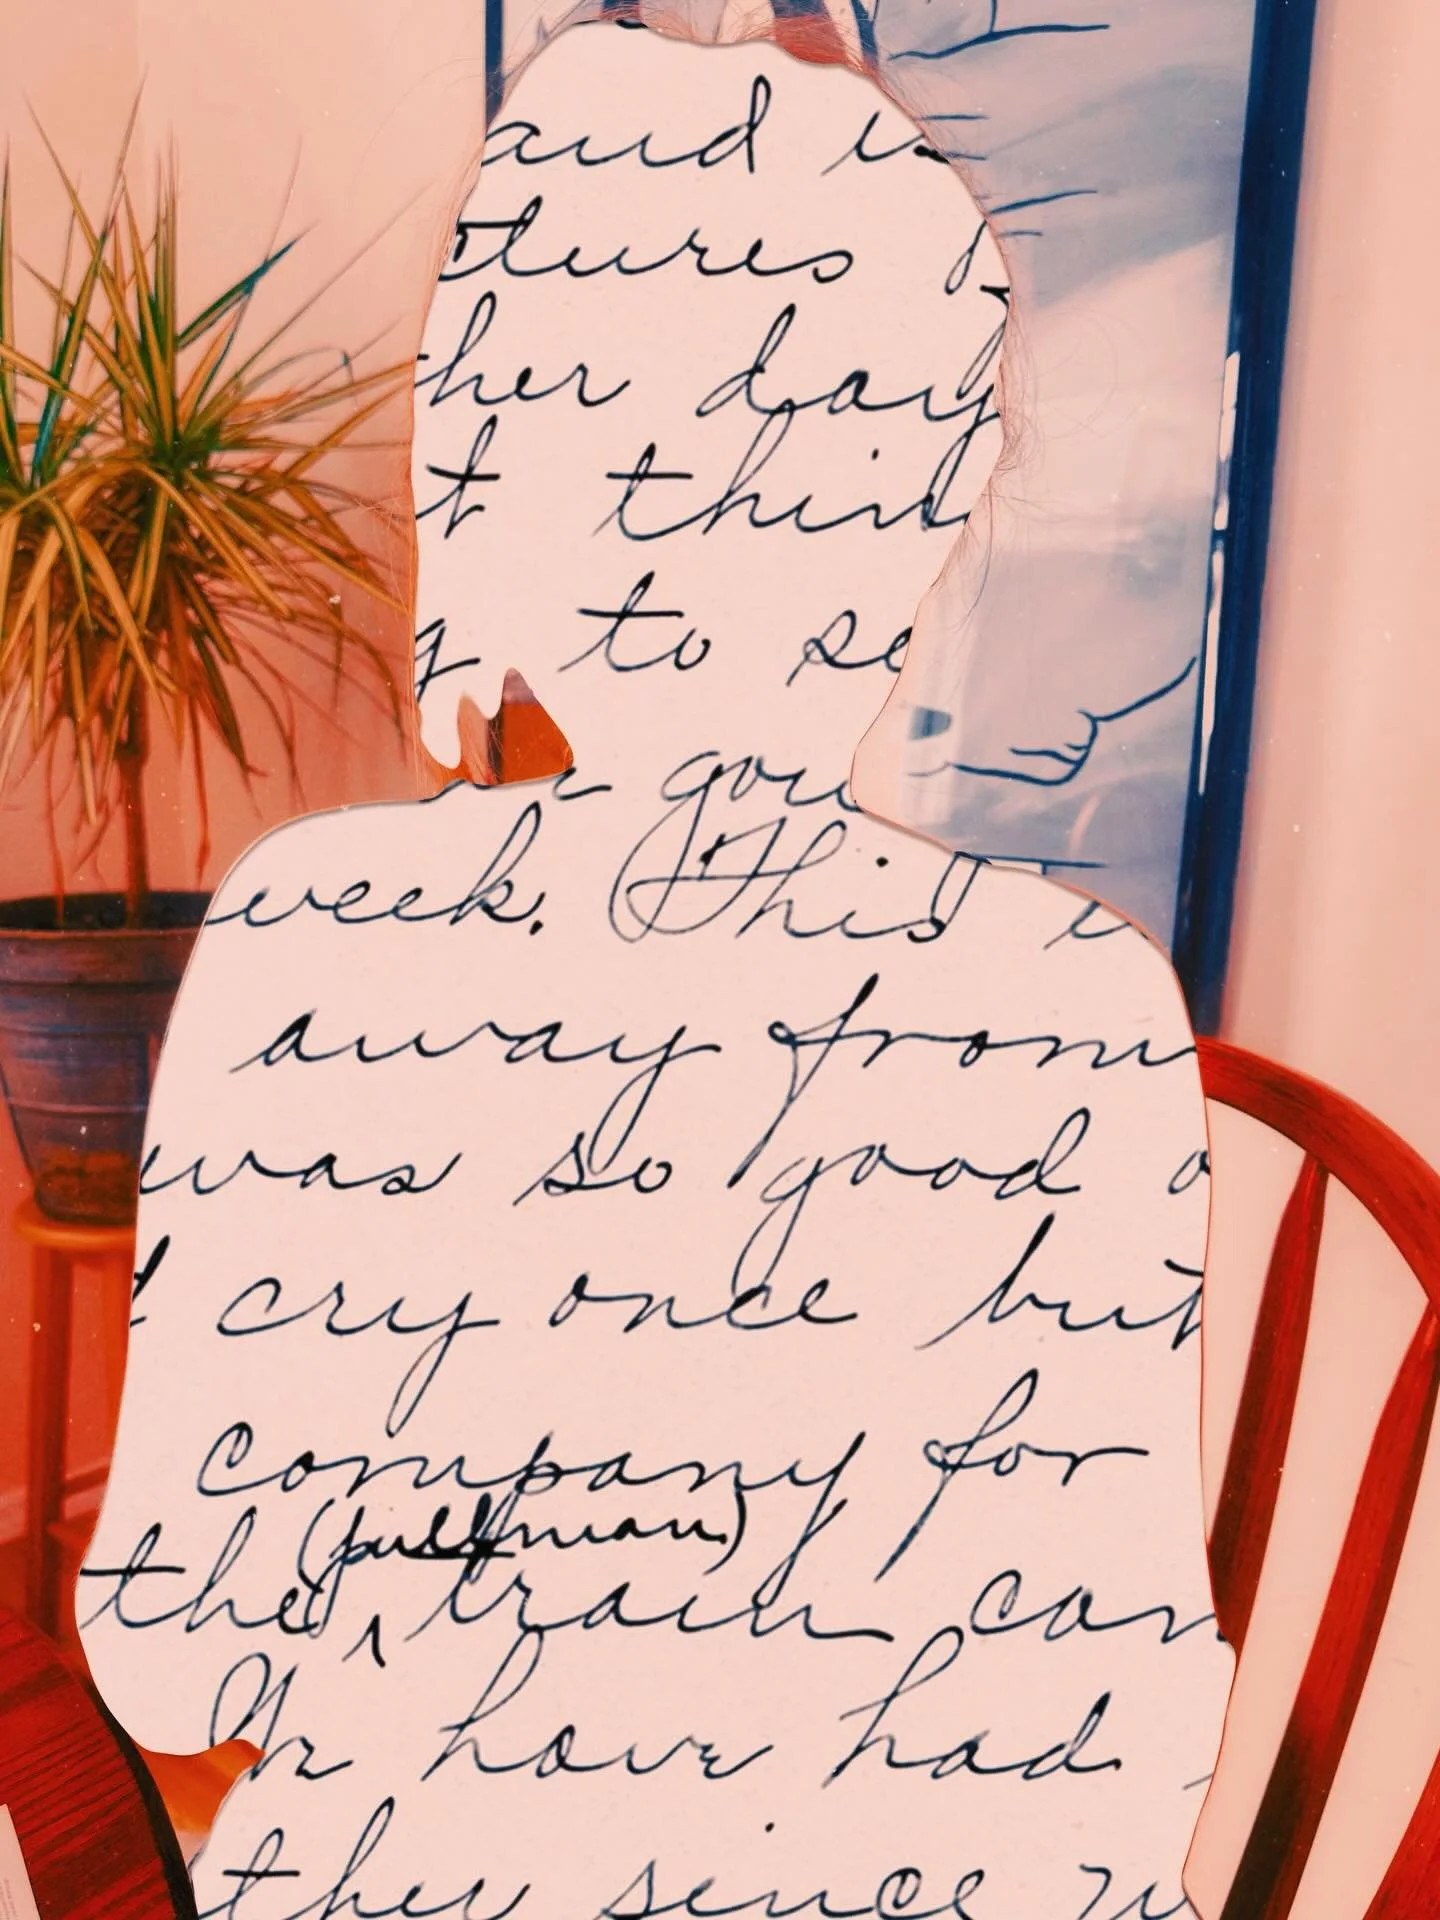 and is
tures of
her day
t thin
g to se
r you
week. This i
away from
was so good o
d cry once but
company for
(pullman)
the train can
We have had
ther since w